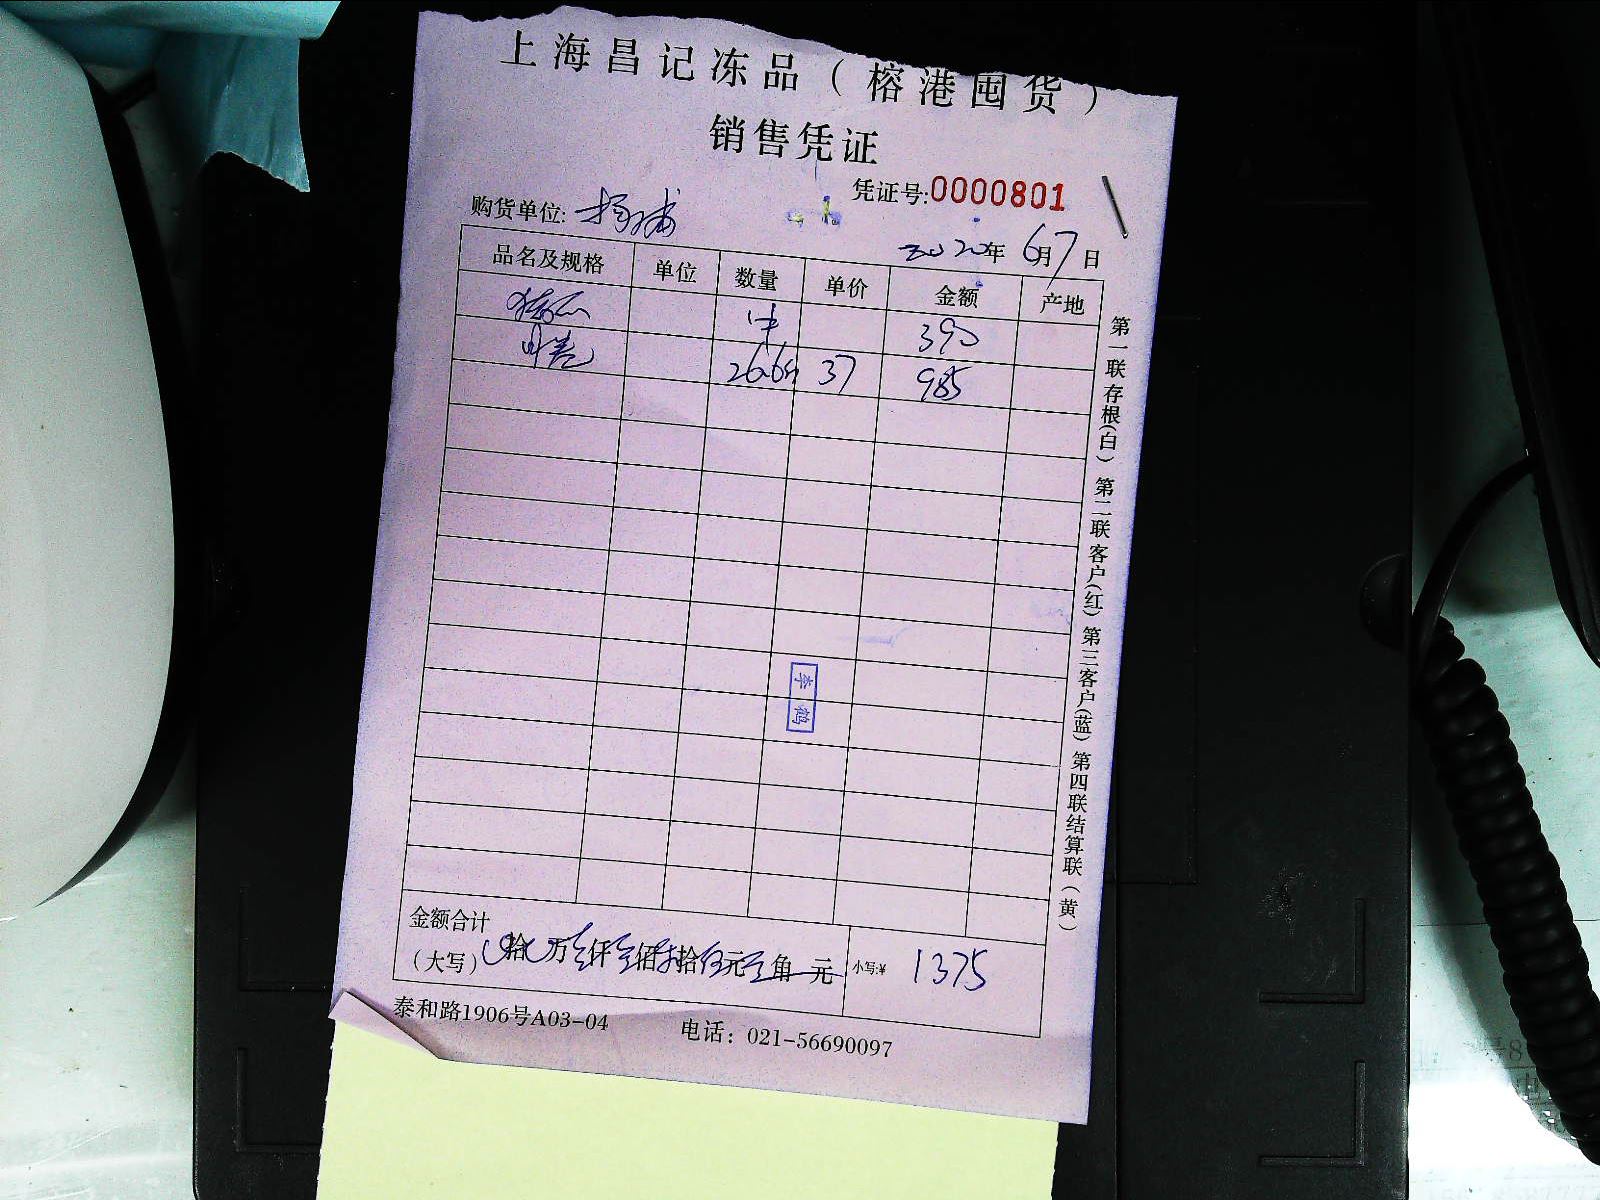 上海昌记冻品（榕港囤货）
销售凭证
凭证号:0000801
购货单位: 杨浦
2020年 6月7日
品名及规格 单位 数量 单价 金额 产地
390
26.6斤 37 985
李鹤
第一联存根(白) 第二联客户(红) 第三客户(蓝) 第四联结算联(黄)
金额合计
(大写) 拾 万 仟 佰 拾 伍元 角 元 小写:¥ 1375
泰和路1906号A03-04 电话：021-56690097